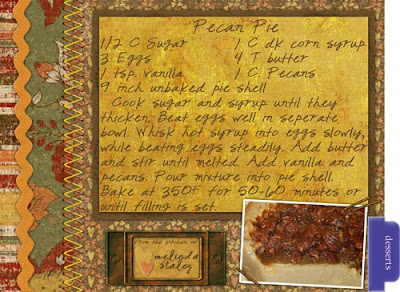 Pecan Pie
1/2 C Sugar 1 C dk corn syrup
3 Eggs 4 T butter
1 tsp. vanilla 1 C. Pecans
9 inch unbaked pie shell
Cook sugar and syrup until they
thicken. Beat eggs well in seperate
bowl. Whisk hot syrup into eggs slowly,
while beating eggs steadily. Add butter
and stir until melted. Add vanilla and
pecans. Pour mixture into pie shell.
Bake at 350F for 50-60 minutes or
until filling is set.
From the kitchen of
melinda
staley
desserts